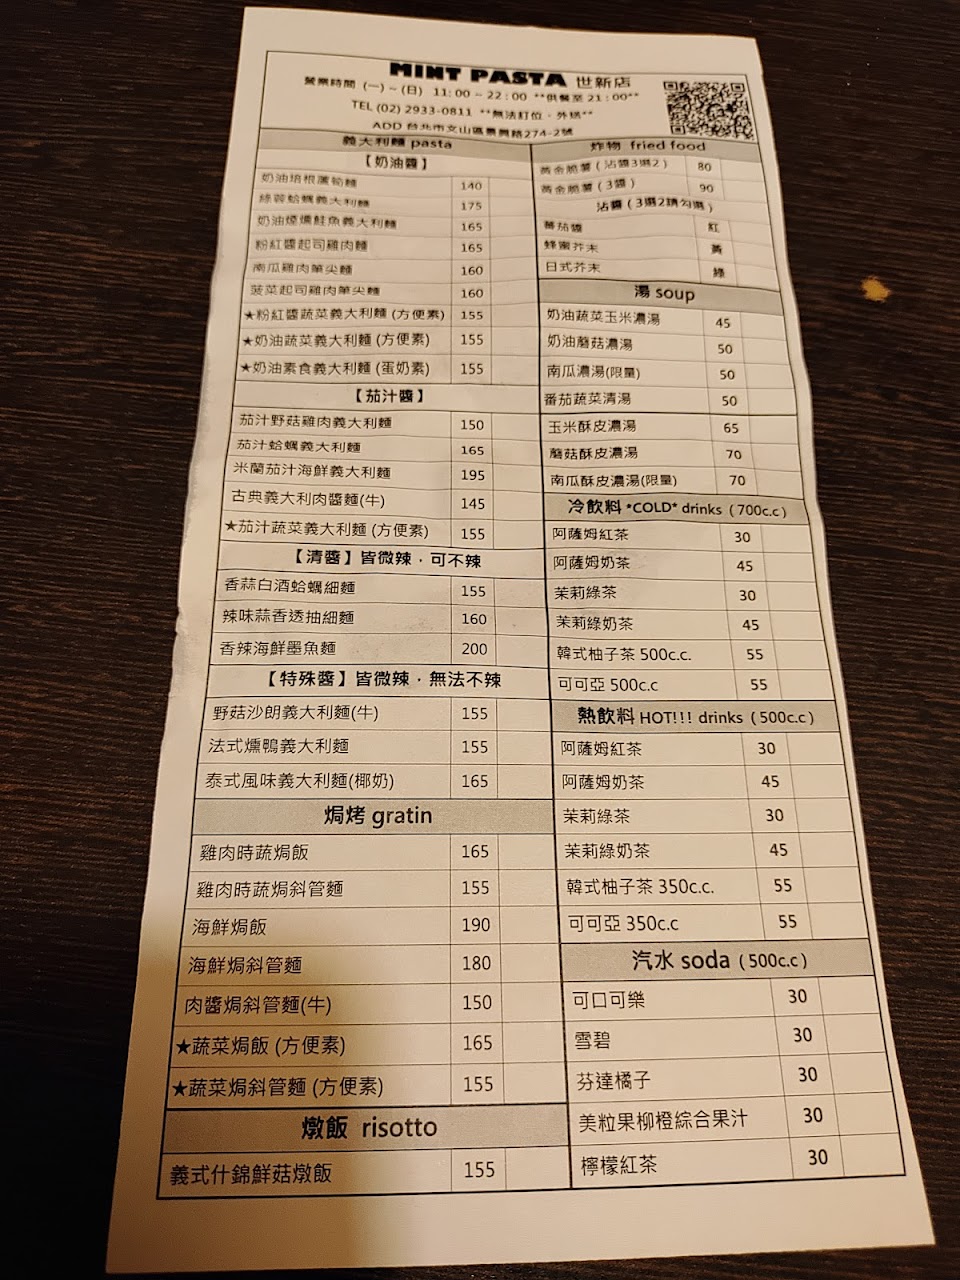 MINT PASTA 世新店
營業時間 (一) ~ (日) 11:00 ~ 22:00 **供餐至 21:00**
TEL (02) 2933-0811 **無法訂位、外送**
ADD 台北市文山區景興路274-2號
義大利麵 pasta
【奶油醬】
奶油培根蘆筍麵 140
綠蓉蛤蠣義大利麵 175
奶油燻鮭魚義大利麵 165
粉紅醬起司雞肉麵 165
南瓜雞肉筆尖麵 160
菠菜起司雞肉筆尖麵 160
★粉紅醬蔬菜義大利麵 (方便素) 155
★奶油蔬菜義大利麵 (方便素) 155
★奶油素食義大利麵 (蛋奶素) 155
【茄汁醬】
茄汁野菇雞肉義大利麵 150
茄汁蛤蠣義大利麵 165
米蘭茄汁海鮮義大利麵 195
古典義大利肉醬麵(牛) 145
★茄汁蔬菜義大利麵 (方便素) 155
【清醬】皆微辣，可不辣
香蒜白酒蛤蠣細麵 155
辣味蒜香透抽細麵 160
香辣海鮮墨魚麵 200
【特殊醬】皆微辣，無法不辣
野菇沙朗義大利麵(牛) 155
法式燻鴨義大利麵 155
泰式風味義大利麵(椰奶) 165
焗烤 gratin
雞肉時蔬焗飯 165
雞肉時蔬焗斜管麵 155
海鮮焗飯 190
海鮮焗斜管麵 180
肉醬焗斜管麵(牛) 150
★蔬菜焗飯 (方便素) 165
★蔬菜焗斜管麵 (方便素) 155
燉飯 risotto
義式什錦鮮菇燉飯 155
炸物 fried food
黃金脆薯 (沾醬3選2) 80
黃金脆薯 (3醬) 90
沾醬 (3選2請勾選)
蕃茄醬 紅
蜂蜜芥末 黃
日式芥末 綠
湯 soup
奶油蔬菜玉米濃湯 45
奶油蘑菇濃湯 50
南瓜濃湯(限量) 50
番茄蔬菜清湯 50
玉米酥皮濃湯 65
蘑菇酥皮濃湯 70
南瓜酥皮濃湯(限量) 70
冷飲料 *COLD* drinks (700c.c)
阿薩姆紅茶 30
阿薩姆奶茶 45
茉莉綠茶 30
茉莉綠奶茶 45
韓式柚子茶 500c.c. 55
可可亞 500c.c 55
熱飲料 HOT!!! drinks (500c.c)
阿薩姆紅茶 30
阿薩姆奶茶 45
茉莉綠茶 30
茉莉綠奶茶 45
韓式柚子茶 350c.c. 55
可可亞 350c.c 55
汽水 soda (500c.c)
可口可樂 30
雪碧 30
芬達橘子 30
美粒果柳橙綜合果汁 30
檸檬紅茶 30